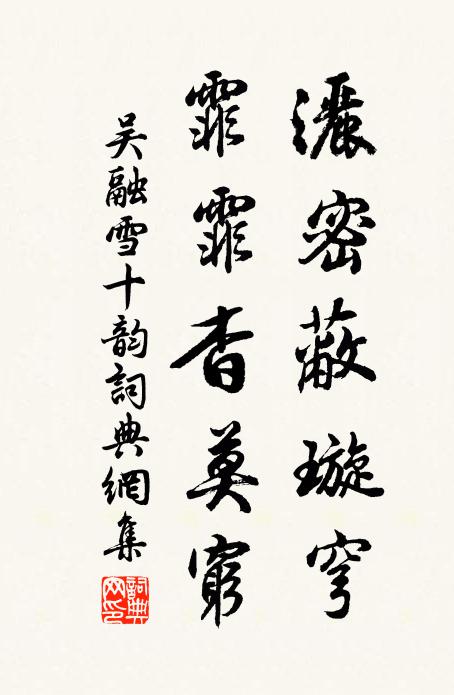 灑密蔽璇穹
霏霏杳莫窮
吴融雪十韵詞典網集
詞典网印